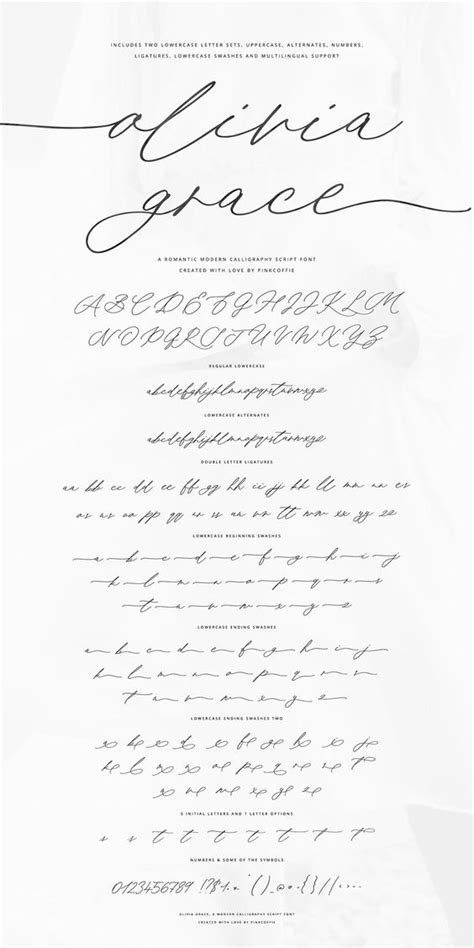 INCLUDES TWO LOWERCASE LETTER SETS, UPPERCASE, ALTERNATES, NUMBERS,
LIGATURES, LOWERCASE SWASHES AND MULTILINGUAL SUPPORT
olivia
grace
A ROMANTIC MODERN CALLIGRAPHY SCRIPT FONT
CREATED WITH LOVE BY PINKCOFFIE
A B C D E F G H I J K L M
N O P Q R S T U V W X Y Z
REGULAR LOWERCASE
abcdefghijklmnopqrstuvwxyz
LOWERCASE ALTERNATES
abcdefghijklmnopqrstuvwxyz
DOUBLE LETTER LIGATURES
aa bb cc dd ee ff gg hh ii jj kk ll mm nn
LOWERCASE BEGINNING SWASHES
a b c d e f g h i j
k l m n o p q r s
t u v w x y z
LOWERCASE ENDING SWASHES
a b c d e f g h i j
k l m n o p q r s
t u v w x y z
LOWERCASE ENDING SWASHES TWO
5 INITIAL LETTERS AND T LETTER OPTIONS
s s t t t t t t t
NUMBERS & SOME OF THE SYMBOLS
0123456789 !?$1
OLIVIA GRACE, A MODERN CALLIGRAPHY SCRIPT FONT
CREATED WITH LOVE BY PINKCOFFIE